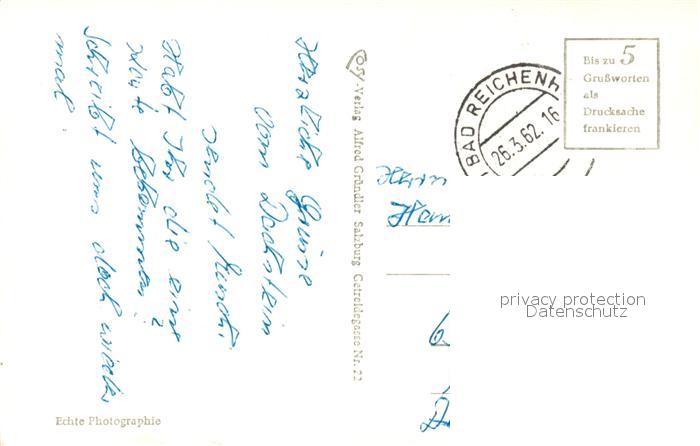 Herzliche Grüsse
vom Dachstein
sendet
Habt Ihr die eine
Karte bekommen?
Schreibt uns doch wieder
mal.
Cosy-Verlag Alfred Gründler Salzburg Getreidegasse Nr. 22
BAD REICHENH
26.3.62.16
Bis zu 5
Grußworten
als
Drucksache
frankieren
Herrn
privacy protection
Datenschutz
Echte Photographie